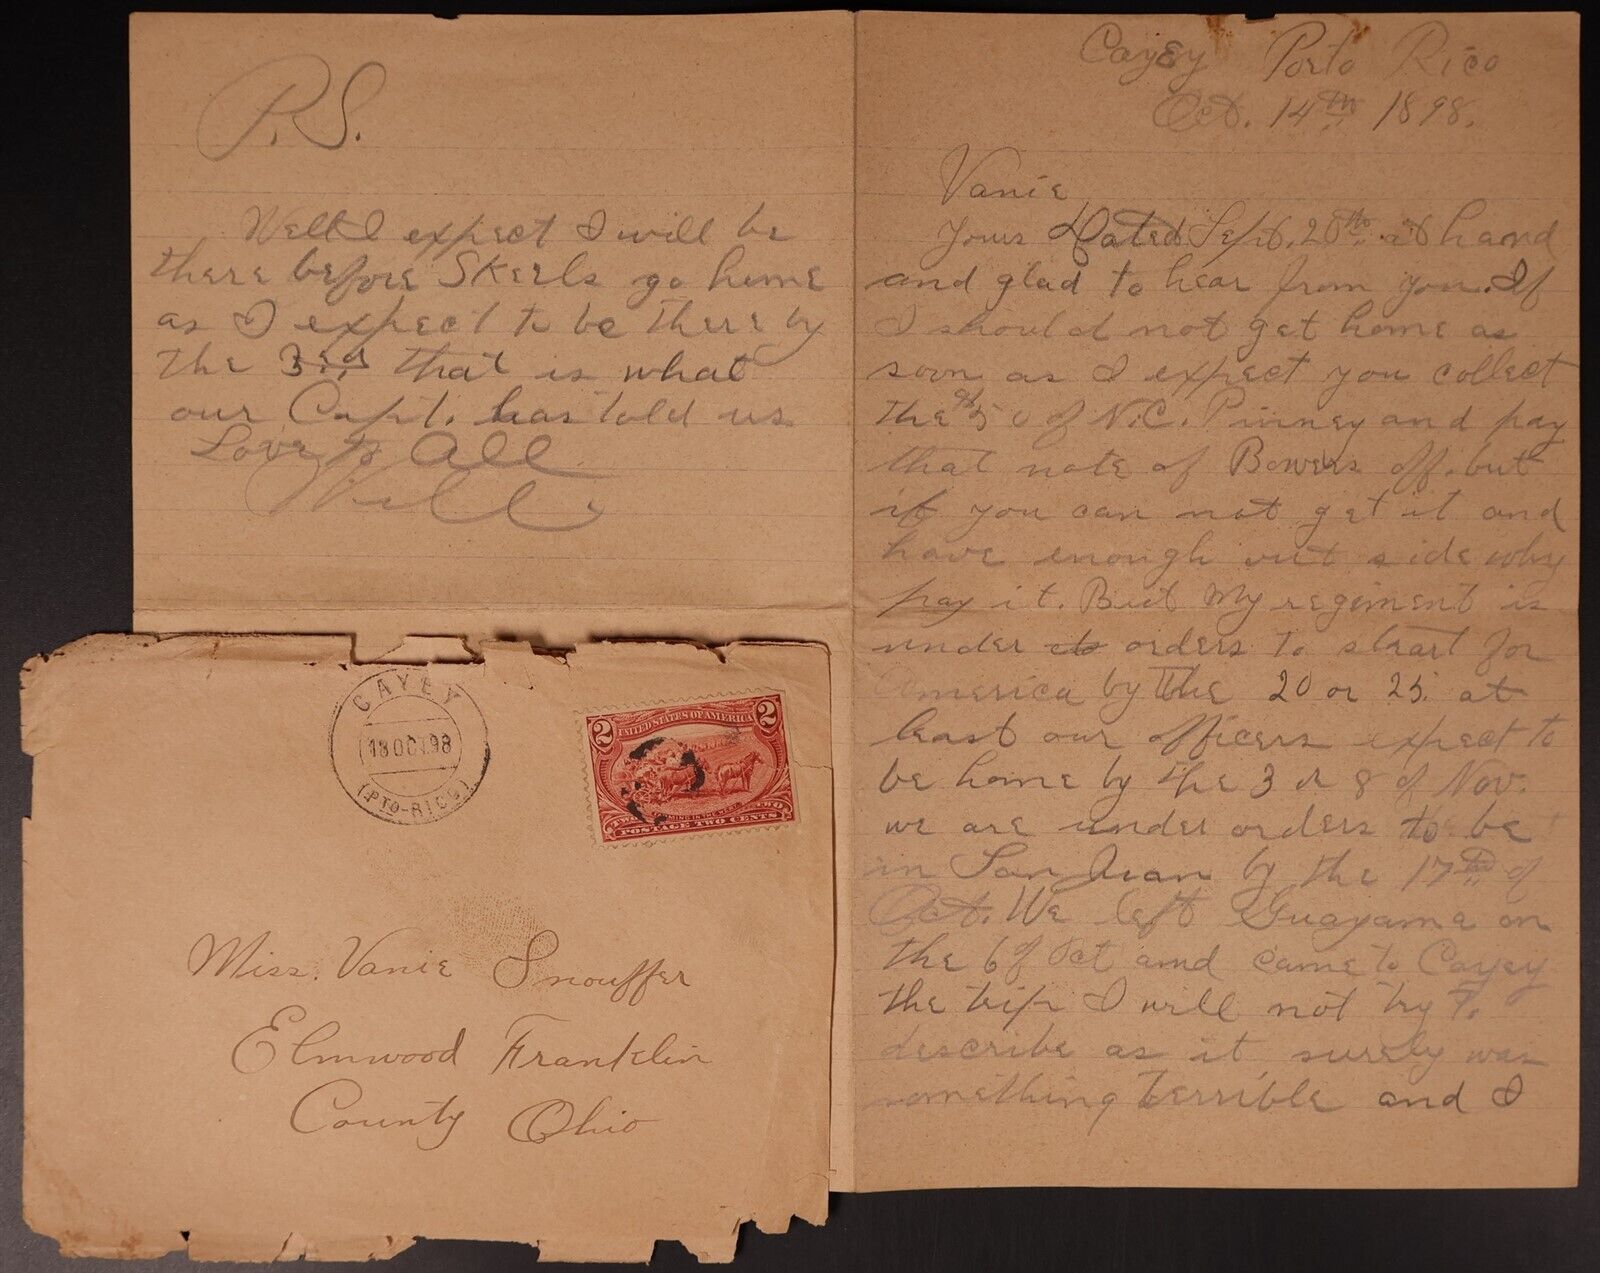 P.S.
Well I expect I will be
there before Skeels go home
as I expect to be there by
the 3rd that is what
our Capt. has told us
Love to All
Will
Cayey Porto Rico
Oct. 14th 1898.
Vanie
Yours Dated Sept. 28th at hand
and glad to hear from you. If
I should not get home as
soon as I expect you collect
the of N.C. Pinney and pay
that note of Bowers off. but
if you can not get it and
have enough out side why
pay it. But My regiment is
under orders to start for
America by the 20 or 25. at
least our officers expect to
be home by the 3 or 8 of Nov.
we are under orders to be
in San Juan by the 17th of
Oct. We left Guayama on
the 6 of Oct and came to Cayey
the trip I will not try to
describe as it surely was
something terrible and I
CAYEY
18 OCT. 98
(PTO-RICO)
UNITED STATES OF AMERICA
2 2
TWO TWO
POSTAGE TWO CENTS
Miss. Vanie Snouffer
Elmwood Franklin
County Ohio